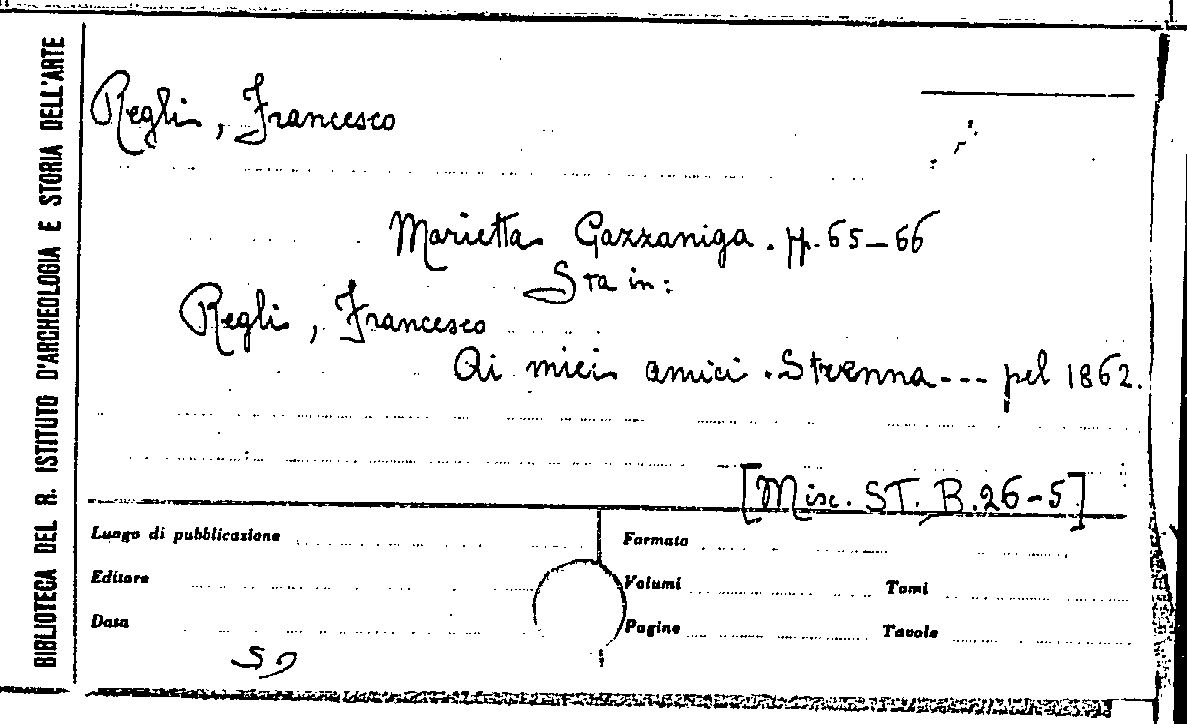 BIBLIOTECA DEL R. ISTITUTO D'ARCHEOLOGIA E STORIA DELL'ARTE
Regli, Francesco
Marietta Gazzaniga. pp. 65-66
Sta in:
Regli, Francesco
Ai miei amici. Strenna --- pel 1862.
[Misc. ST. B. 26-5]
Luogo di pubblicazione
Formato
Editore
Volumi
Tomi
Data
Pagine
Tavole